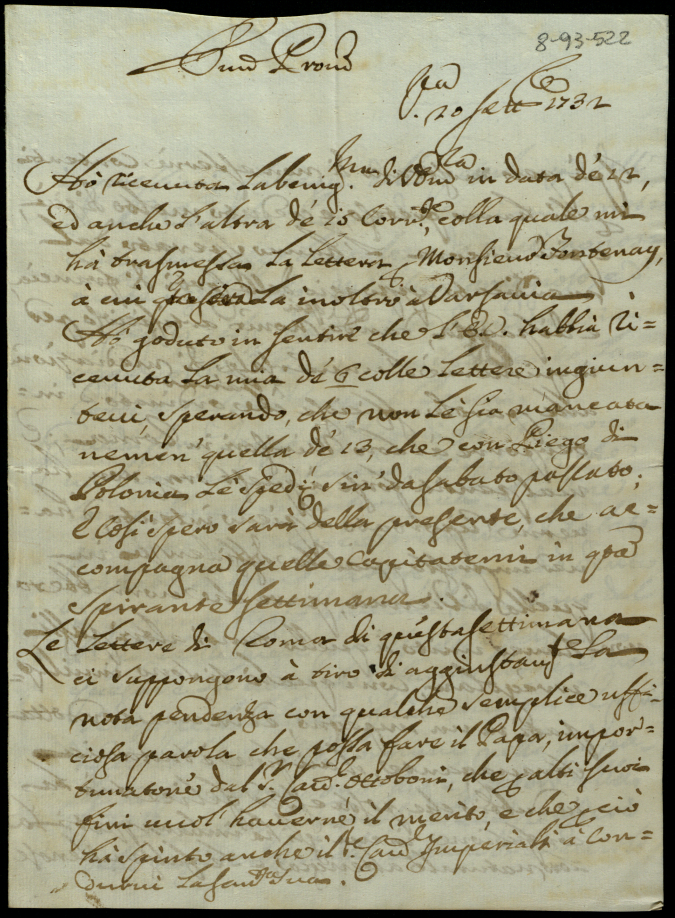 8-93-522
20 Sett 1732
Hò riceuuta la benig.ma di VEm.za in data dé 12,
ed anche l'altra dé 15 Corr.e, colla quale mi
hà trasmessa la lettera p Monsieur Fontenay,
à cui la inoltrò à Varsauia
Hò goduto in sentire che l'E.V. habbia ri=
ceuuta la mia dé 6 colle lettere ingiun=
teui, sperando, che non le sia mancata
nemen' quella dé 13, che con Piego di
Polonia le spedij sin' da sabato passato,
e Così spero sarà della presente, che ac=
compagna quelle Capitatemi in qta
spirante settimana.
Le Lettere di Roma di questa settimana
ci suppongono à tiro di aggiustam.to la
nota pendenza con qualche semplice uffi=
ciosa parola che possa fare il Papa, impor=
tunatone dal S.r Card. Ottoboni, che p altri suoi
fini uuol' hauerne il merito, e che p ciò
hà spinto anche il S.r Card. Imperiali à Con=
durui la sua.